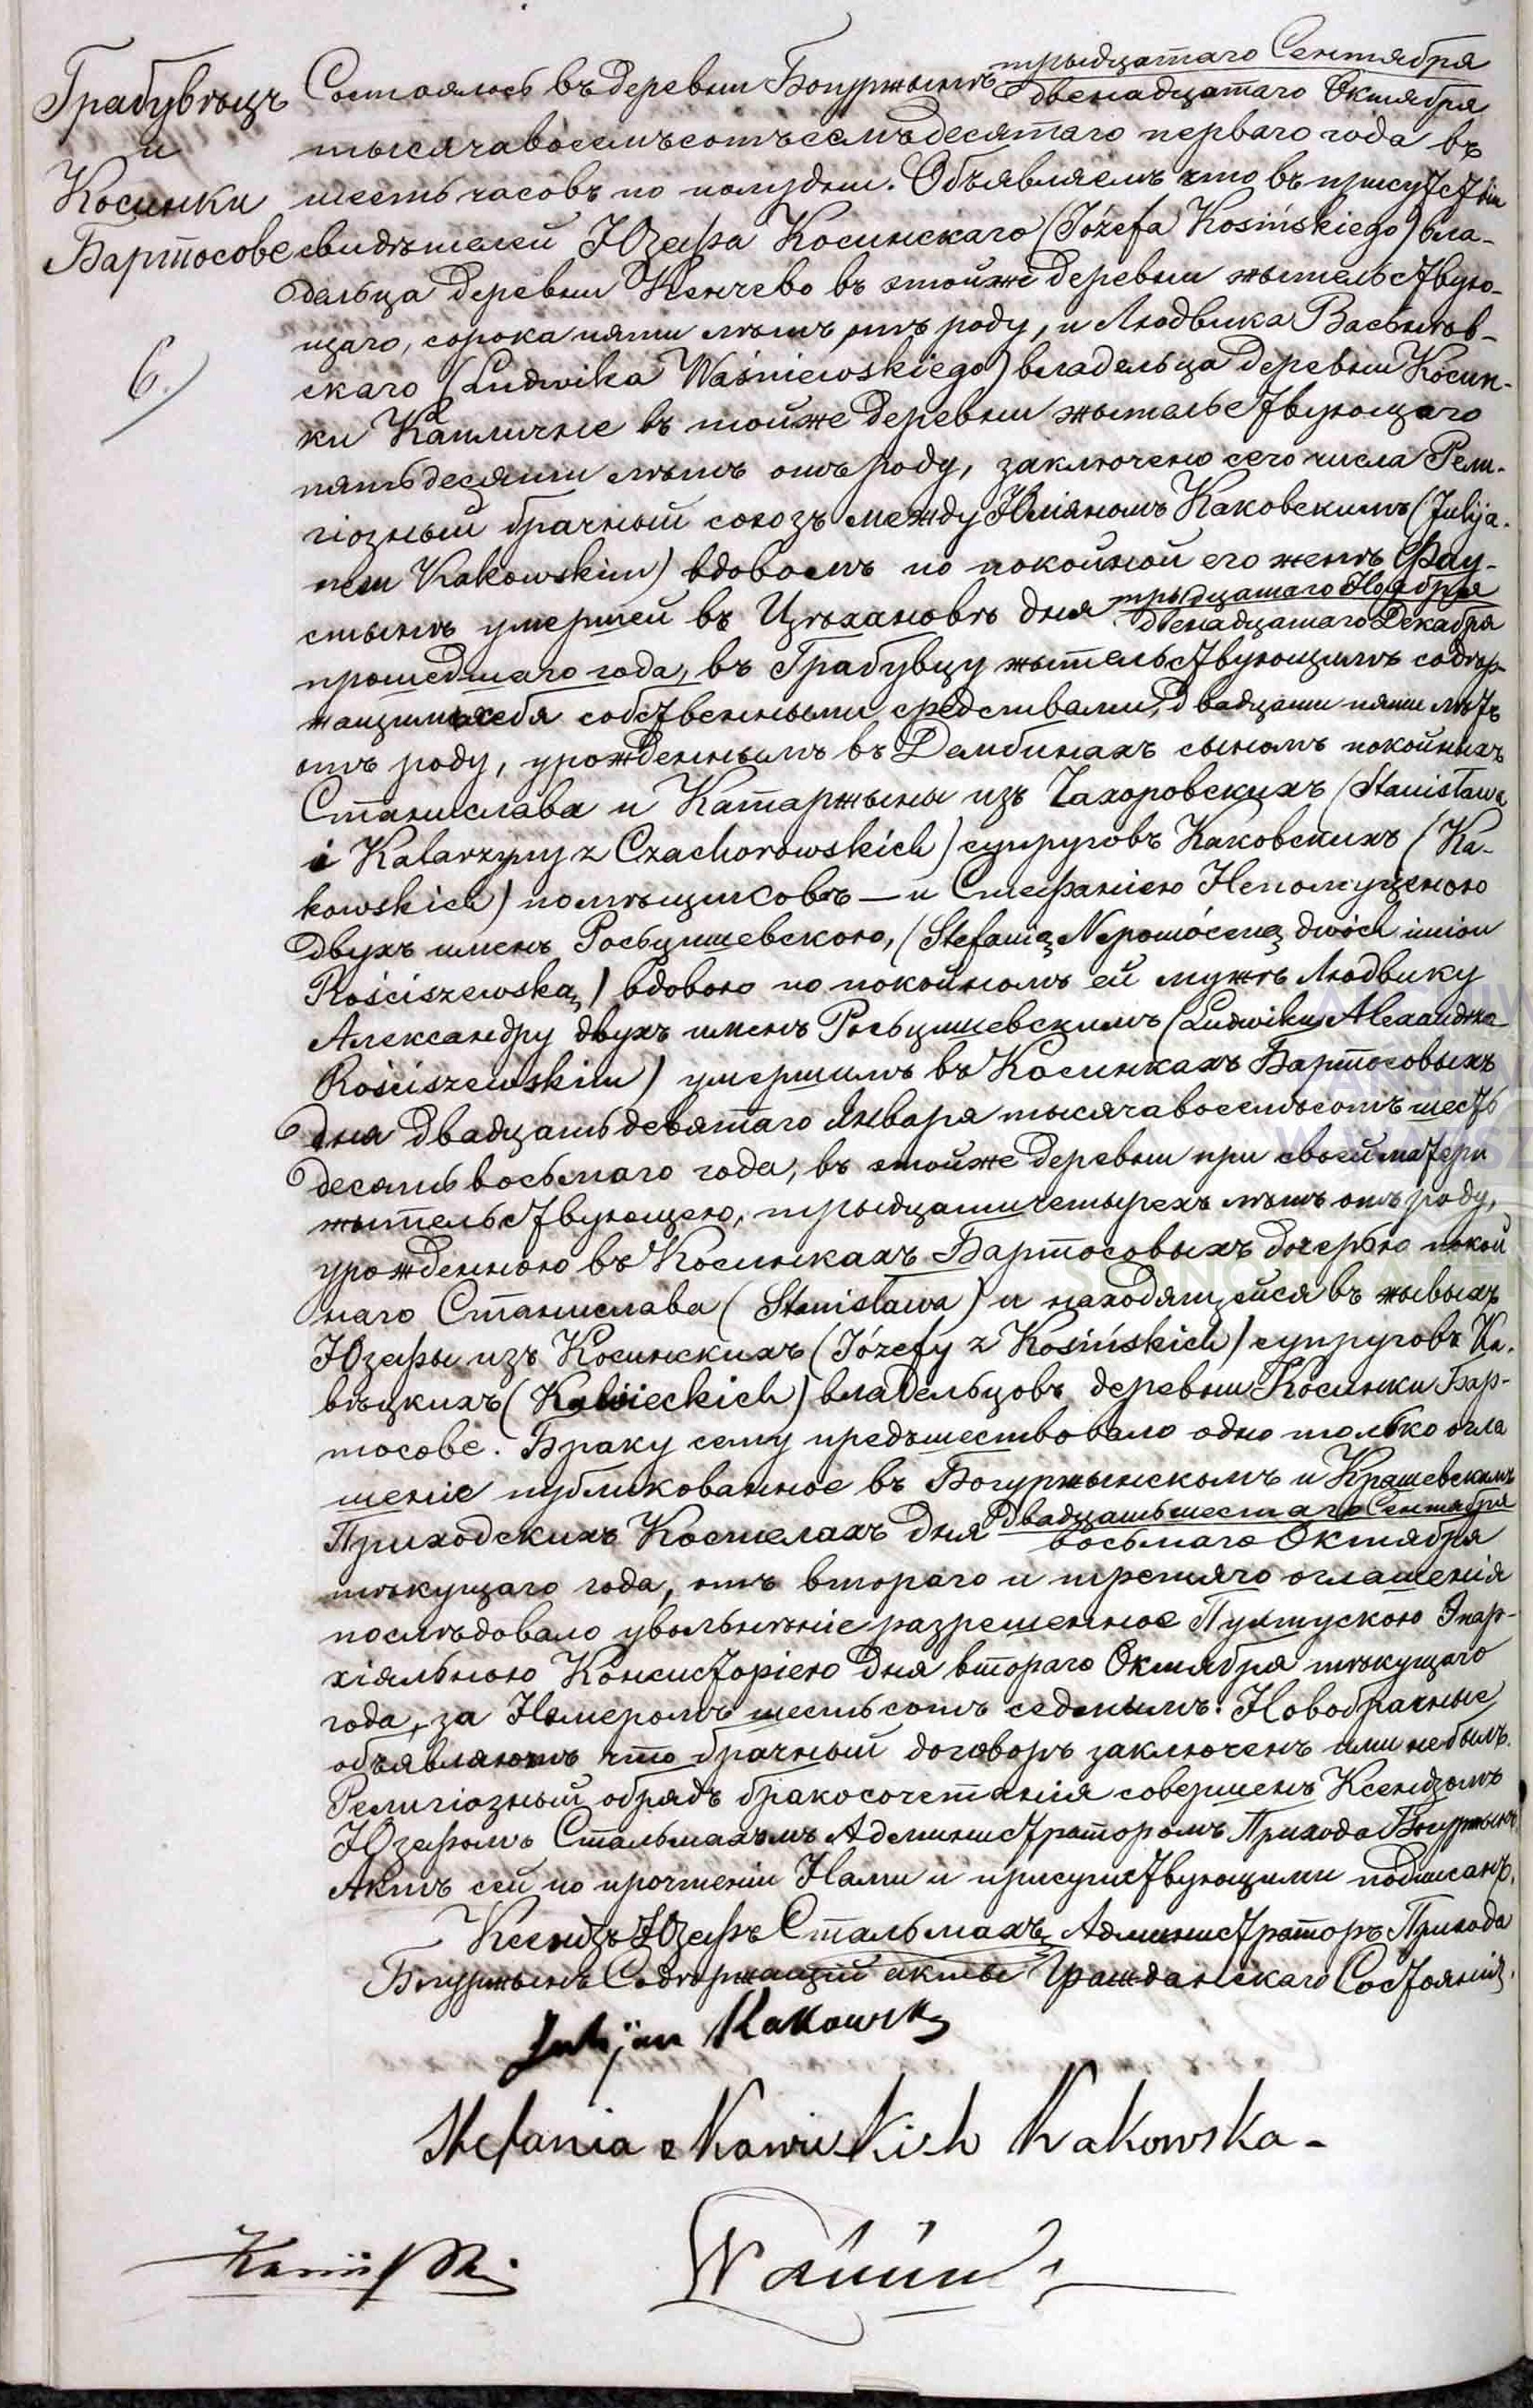 Грабувѣцъ
и
Косинки
Бартосове
6.)
Состоялось въ деревни Богуржынѣ тридцатаго Сентября
двенадцатаго Октября
тысяча восемьсотъ семъдесятаго перваго года въ
шесть часовъ по полудни. Объявляемъ что въ присутствіи
свидѣтелей Юзефа Косинскаго (Józefa Kosińskiego) вла-
дельца деревни Кенчево въ этойже деревни жительствую-
щаго, сорока пяти лѣтъ отъ роду, и Людвика Васьнѣв-
скаго (Ludwika Waśniewskiego) владельца деревни Косин-
ки Капличне въ тойже деревни жытельствующаго
пятьдесяти лѣтъ отъ роду, заключено сего числа Рели-
гіозный брачный союзъ между Юліяномъ Каковскимъ (Julija-
nem Kakowskim) вдовомъ по покойной его женѣ Фау-
стынѣ умершей въ Цѣхановѣ дня тридцатаго Ноября
двенадцатаго Декабря
прошедшаго года, въ Грабувцу жытельствующимъ содѣр-
жащимъ себя собственными средствами, двадцати пяти лѣтъ
отъ роду, урожденнымъ въ Дембинахъ сыномъ покойныхъ
Станислава и Катаржыны изъ Чахоровскихъ (Stanisława
i Katarzyny z Czachorowskich) супруговъ Каковскихъ (Ka-
kowskich) помѣщиковъ — и Стефаніею Непомуценою
двухъ именъ Росьцишевскою, (Stefanią Nepomóceną dwóch imion
Rościszewską) вдовою по покойномъ ей мужѣ Людвику
Александру двухъ именъ Росьцишевскимъ (Ludwiku Alexandrze
Rościszewskim) умершимъ въ Косинкахъ Бартосовыхъ
дня двадцать девятаго Января тысяча восемьсотъ шесть
десять восьмаго года, въ этойже деревни при своей матери
жытельствующею, трыдцати четырехъ лѣтъ отъ роду,
урожденною въ Косинкахъ Бартосовыхъ дочерью покой
наго Станислава (Stanisława) и находящейся въ жывыхъ
Юзефы изъ Косинскихъ (Józefy z Kosińskich) супруговъ Ка-
вѣцкихъ (Kawieckich) владельцовъ деревни Косинки Бар-
тосове. Браку сему предшествовало одно только огла
шеніе публикованное въ Богуржынскомъ и Крашевскимъ
Приходскихъ Костелахъ дня двадцать шестаго Сентября
восьмаго Октября
тѣкущаго года, отъ втораго и третяго оглашенія
послѣдовало увольнѣніе разрешенное Пултускою Эпар-
хіяльною Консисторіею дня втораго Октября тѣкущаго
года, за Нумеромъ шестьсотъ седмымъ. Новобрачные
объявляютъ что брачный договоръ заключенъ ими небылъ.
Религіозный обрядъ бракосочетанія совершенъ Ксендзомъ
Юзефомъ Стальмахъмъ Администраторомъ Прихода Богуржынъ.
Актъ сей по прочтеніи Нами и присутствующими подписанъ.
Ксендзъ Юзефъ Стальмахъ Администраторъ Прихода
Богуржынъ Содѣржащій акты Гражданскаго Состоянія.
Julijan Kakowski
Stefania z Kawieckich Kakowska -